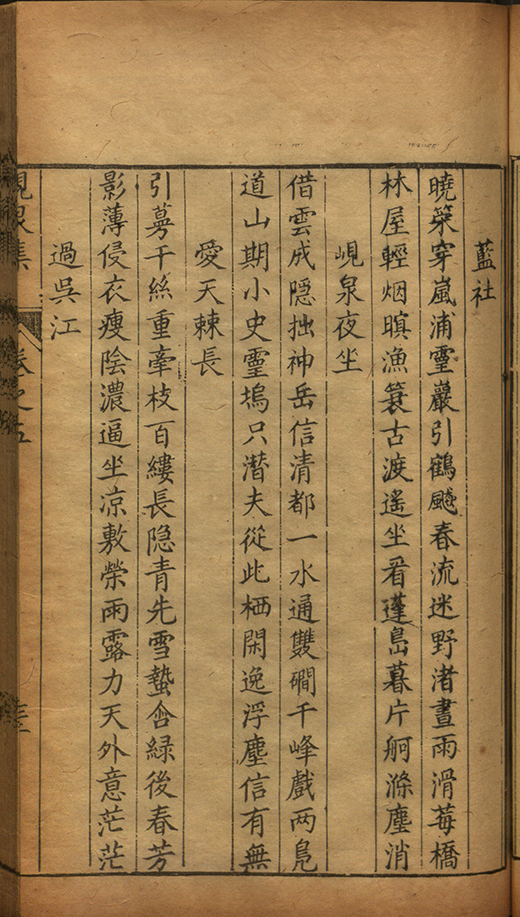 藍社
曉策穿嵐浦靈巖引鶴飈春流迷野渚晝雨滑莓橋
林屋輕烟暝漁簑古渡遙坐看蓬島暮片舸滌塵消
峴泉夜坐
借雲成隠拙神岳信清都一水通雙磵千峰戲两鳬
道山期小史靈塢只潜夫從此栖閑逸浮塵信有無
愛天棘長
引蔓千絲重牽枝百縷長隐青先雪蟄含緑後春芳
影薄侵衣瘦陰濃逼坐凉敷榮雨露力天外意茫茫
過吳江
峴泉集 卷之五